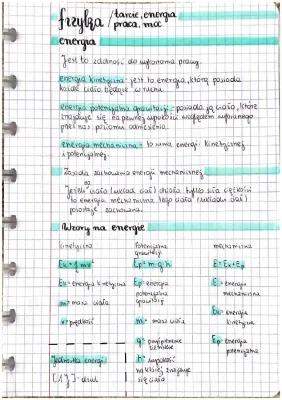 fizyka / tarcie, energia
praca, moc
energia
Jest to zdolność do wykonania pracy.
energia kinetyczna - jest to energia, którą posiada
każde ciało będące w ruchu.
energia potencjalna grawitacji - posiada ją ciało, które
znajduje się na pewnej wysokości względem wybranego
przez nas poziomu odniesienia.
energia mechaniczna - to suma energii kinetycznej
i potencjalnej.
Zasada zachowania energii mechanicznej
Jeżeli na ciało (układ ciał) działa tylko siła ciężkości
to energia mechaniczna tego ciała (układu ciał)
pozostaje zachowana.
Wzory na energię
kinetyczna
Ek = 1/2 mv²
Ek = energia kinetyczna
m = masa ciała
v = prędkość
Jednostka energii
[1J] - dżul
Potencjalna
grawitacji
Ep = m·g·h
Ep = energia
potencjalna
grawitacji
m = masa ciała
g = przyspieszenie
ziemskie
h = wysokość
na której znajduje
się ciało
mechaniczna
E = Ek + Ep
E = energia
mechaniczna
Ek = energia
kinetyczna
Ep = energia
potencjalna